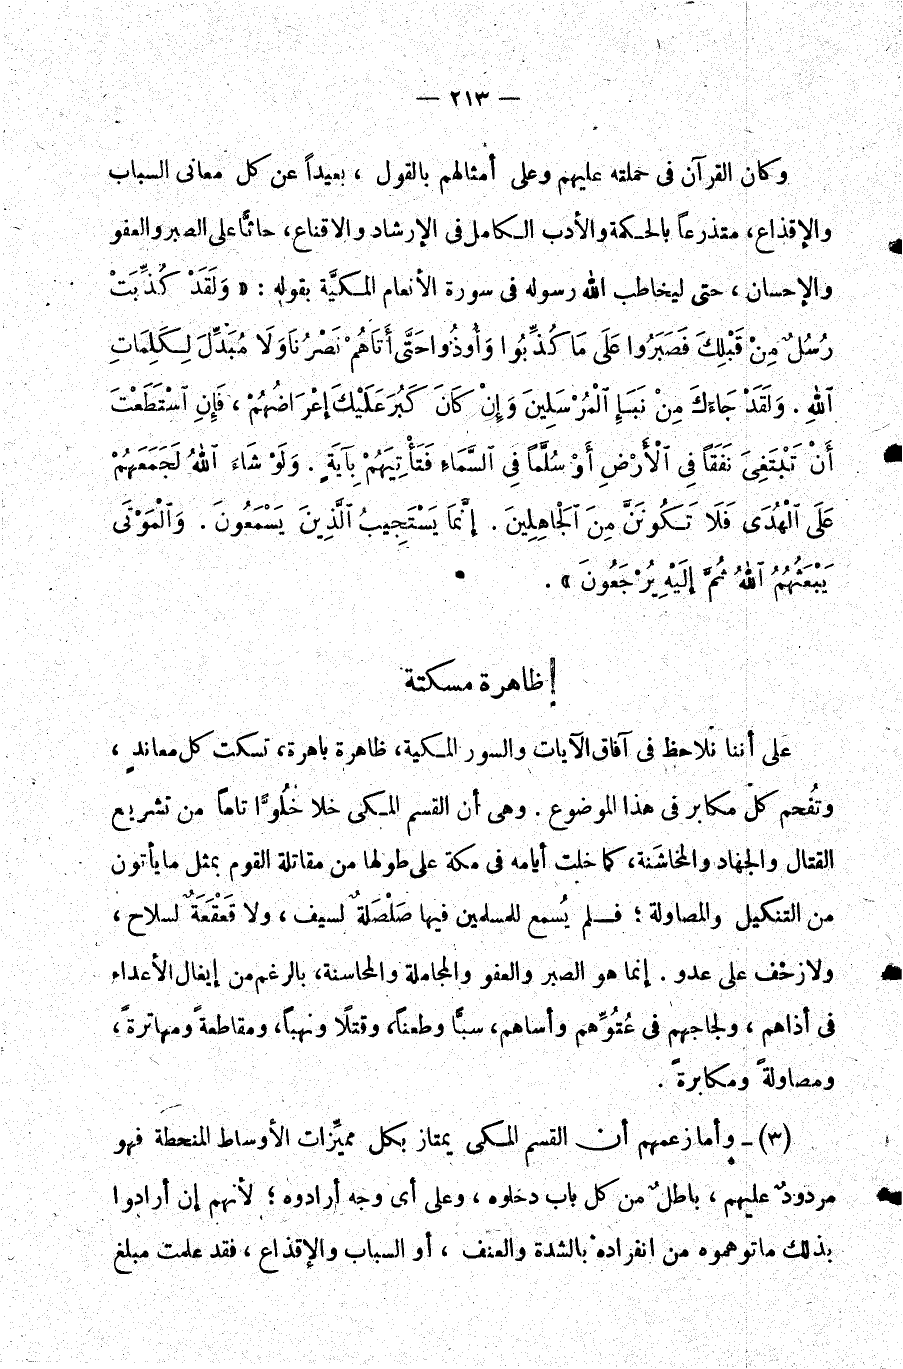 — ٢١٣ —
وكان القرآن فى حملته عليهم وعلى أمثالهم بالقول ، بعيداً عن كل معانى السباب
والإقذاع، متذرعاً بالحكمة والأدب الكامل فى الإرشاد والاقناع، حاثًّا على الصبر والعفو
والإحسان ، حتى ليخاطب الله رسوله فى سورة الأنعام المكيَّة بقوله : « وَلَقَدْ كُذِّبَتْ
رُسُلٌ مِنْ قَبْلِكَ فَصَبَرُوا عَلَى مَا كُذِّبُوا وَأُوذُوا حَتَّى أَتَاهُمْ نَصْرُنَا وَلَا مُبَدِّلَ لِكَلِمَاتِ
ٱللهِ . وَلَقَدْ جَاءَكَ مِنْ نَبَإِ ٱلْمُرْسَلِينَ وَإِنْ كَانَ كَبُرَ عَلَيْكَ إِعْرَاضُهُمْ ، فَإِنِ ٱسْتَطَعْتَ
أَنْ تَبْتَغِىَ نَفَقاً فِى ٱلْأَرْضِ أَوْ سُلَّماً فِى ٱلسَّمَاءِ فَتَأْتِيَهُمْ بِآيَةٍ . وَلَوْ شَاءَ ٱللهُ لَجَمَعَهُمْ
عَلَى ٱلْهُدَى فَلَا تَكُونَنَّ مِنَ ٱلْجَاهِلِينَ . إِنَّمَا يَسْتَجِيبُ ٱلَّذِينَ يَسْمَعُونَ . وَٱلْمَوْتَى
يَبْعَثُهُمُ ٱللهُ ثُمَّ إِلَيْهِ يُرْجَعُونَ » .
ظاهرة مسكتة
على أننا نلاحظ فى آفاق الآيات والسور المكية، ظاهرة باهرة، تسكت كل معاند ،
وتُفحم كلّ مكابر فى هذا الموضوع . وهى أن القسم المكى خلا خُلُوًّا تاما من تشريع
القتال والجهاد والمخاشَنة، كما خلت أيامه فى مكة على طولها من مقاتلة القوم بمثل ما يأتون
من التنكيل والمصاولة ؛ فلم يُسمع للمسلمين فيها صَلْصَلةٌ لسيف ، ولا قَعْقَعَةٌ لسلاح ،
ولا زحْف على عدو . إنما هو الصبر والعفو والمجاملة والمحاسنة، بالرغم من إيغال الأعداء
فى أذاهم ، ولجاجهم فى عُتُوِّهم وأساهم، سبًّا وطعناً، وقتلًا ونهباً، ومقاطعةً ومهاترةً،
ومصاولةً ومكابرةً .
(٣) ــ وأما زعمهم أن القسم المكى يمتاز بكل مميِّزات الأوساط المنحطة فهو
مردودٌ عليهم ، باطلٌ من كل باب دخلوه ، وعلى أى وجه أرادوه ؛ لأنهم إن أرادوا
بذلك ماتوهموه من انفراده بالشدة والعنف ، أو السباب والإقذاع ، فقد علمت مبلغ